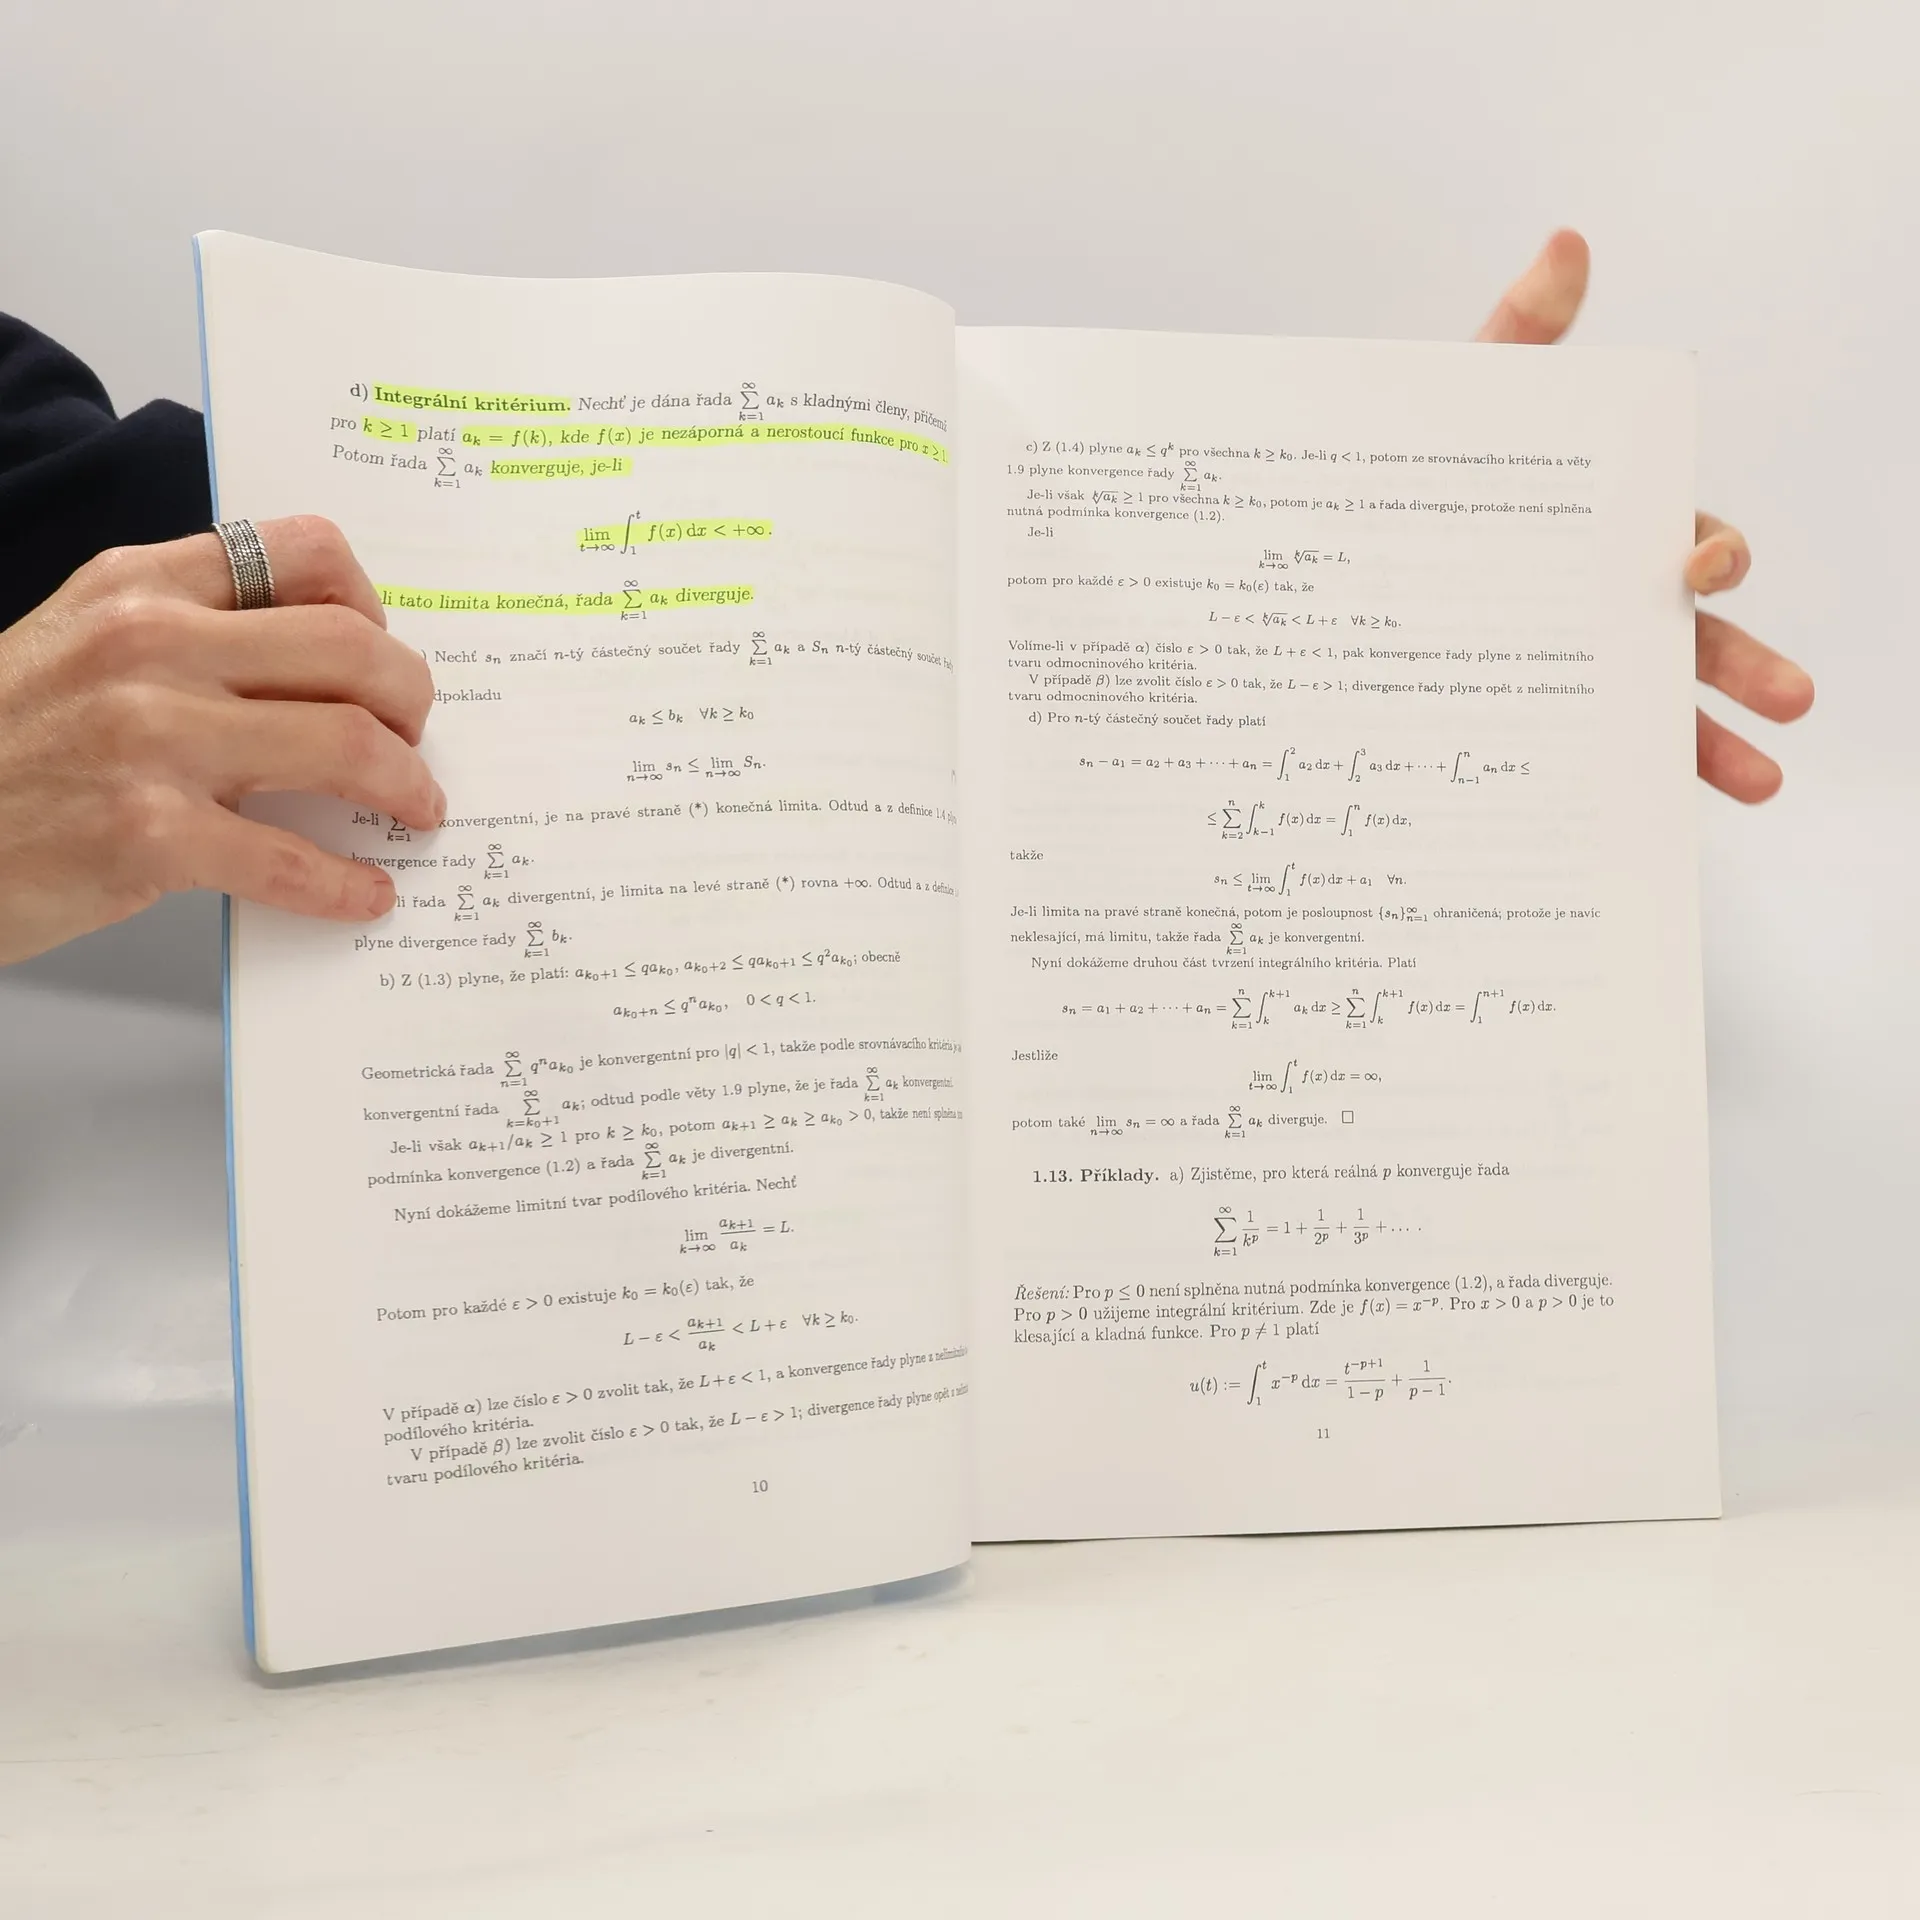 d) Integrální kritérium. Nechť je dána řada ∑_{k=1}^{∞} a_k s kladnými členy, přičemž
pro k ≥ 1 platí a_k = f(k), kde f(x) je nezáporná a nerostoucí funkce pro x ≥ 1.
Potom řada ∑_{k=1}^{∞} a_k konverguje, je-li
lim_{t→∞} ∫_1^t f(x) dx < +∞.
li tato limita konečná, řada ∑_{k=1}^{∞} a_k diverguje.
) Nechť s_n značí n-tý částečný součet řady ∑_{k=1}^{∞} a_k a S_n n-tý částečný součet řady
dpokladu
a_k ≤ b_k ∀k ≥ k_0
lim_{n→∞} s_n ≤ lim_{n→∞} S_n.
Je-li ∑_{k=1} konvergentní, je na pravé straně (*) konečná limita. Odtud a z definice 1.4 plyne
konvergence řady ∑_{k=1}^{∞} a_k.
li řada ∑_{k=1}^{∞} a_k divergentní, je limita na levé straně (*) rovna +∞. Odtud a z definice
plyne divergence řady ∑_{k=1}^{∞} b_k.
b) Z (1.3) plyne, že platí: a_{k_0+1} ≤ qa_{k_0}, a_{k_0+2} ≤ qa_{k_0+1} ≤ q^2 a_{k_0}; obecně
a_{k_0+n} ≤ q^n a_{k_0}, 0 < q < 1.
Geometrická řada ∑_{n=1}^{∞} q^n a_{k_0} je konvergentní pro |q| < 1, takže podle srovnávacího kritéria je
konvergentní řada ∑_{k=k_0+1}^{∞} a_k; odtud podle věty 1.9 plyne, že je řada ∑_{k=1}^{∞} a_k konvergentní.
Je-li však a_{k+1}/a_k ≥ 1 pro k ≥ k_0, potom a_{k+1} ≥ a_k ≥ a_{k_0} > 0, takže není splněna
podmínka konvergence (1.2) a řada ∑_{k=1}^{∞} a_k je divergentní.
Nyní dokážeme limitní tvar podílového kritéria. Nechť
lim_{k→∞} a_{k+1}/a_k = L.
Potom pro každé ε > 0 existuje k_0 = k_0(ε) tak, že
L − ε < a_{k+1}/a_k < L + ε ∀k ≥ k_0.
V případě α) lze číslo ε > 0 zvolit tak, že L + ε < 1, a konvergence řady plyne z
podílového kritéria.
V případě β) lze zvolit číslo ε > 0 tak, že L − ε > 1; divergence řady plyne opět z
tvaru podílového kritéria.
10
c) Z (1.4) plyne a_k ≤ q^k pro všechna k ≥ k_0. Je-li q < 1, potom ze srovnávacího kritéria a věty
1.9 plyne konvergence řady ∑_{k=1}^{∞} a_k.
Je-li však \sqrt[k]{a_k} ≥ 1 pro všechna k ≥ k_0, potom je a_k ≥ 1 a řada diverguje, protože není splněna
nutná podmínka konvergence (1.2).
Je-li
lim_{k→∞} \sqrt[k]{a_k} = L,
potom pro každé ε > 0 existuje k_0 = k_0(ε) tak, že
L − ε < \sqrt[k]{a_k} < L + ε ∀k ≥ k_0.
Volíme-li v případě α) číslo ε > 0 tak, že L + ε < 1, pak konvergence řady plyne z nelimitního
tvaru odmocninového kritéria.
V případě β) lze zvolit číslo ε > 0 tak, že L − ε > 1; divergence řady plyne opět z nelimitního
tvaru odmocninového kritéria.
d) Pro n-tý částečný součet řady platí
s_n − a_1 = a_2 + a_3 + ··· + a_n = ∫_1^2 a_2 dx + ∫_2^3 a_3 dx + ··· + ∫_{n−1}^n a_n dx ≤
≤ ∑_{k=2}^{n} ∫_{k−1}^k f(x) dx = ∫_1^n f(x) dx,
takže
s_n ≤ lim_{t→∞} ∫_1^t f(x) dx + a_1 ∀n.
Je-li limita na pravé straně konečná, potom je posloupnost {s_n}_{n=1}^{∞} ohraničená; protože je navíc
neklesající, má limitu, takže řada ∑_{k=1}^{∞} a_k je konvergentní.
Nyní dokážeme druhou část tvrzení integrálního kritéria. Platí
s_n = a_1 + a_2 + ··· + a_n = ∑_{k=1}^{n} ∫_k^{k+1} a_k dx ≥ ∑_{k=1}^{n} ∫_k^{k+1} f(x) dx = ∫_1^{n+1} f(x) dx.
Jestliže
lim_{t→∞} ∫_1^t f(x) dx = ∞,
potom také lim_{n→∞} s_n = ∞ a řada ∑_{k=1}^{∞} a_k diverguje. □
1.13. Příklady. a) Zjistěme, pro která reálná p konverguje řada
∑_{k=1}^{∞} 1/k^p = 1 + 1/2^p + 1/3^p + ... .
Řešení: Pro p ≤ 0 není splněna nutná podmínka konvergence (1.2), a řada diverguje.
Pro p > 0 užijeme integrální kritérium. Zde je f(x) = x^{−p}. Pro x > 0 a p > 0 je to
klesající a kladná funkce. Pro p ≠ 1 platí
u(t) := ∫_1^t x^{−p} dx = t^{−p+1}/(1−p) + 1/(p−1).
11